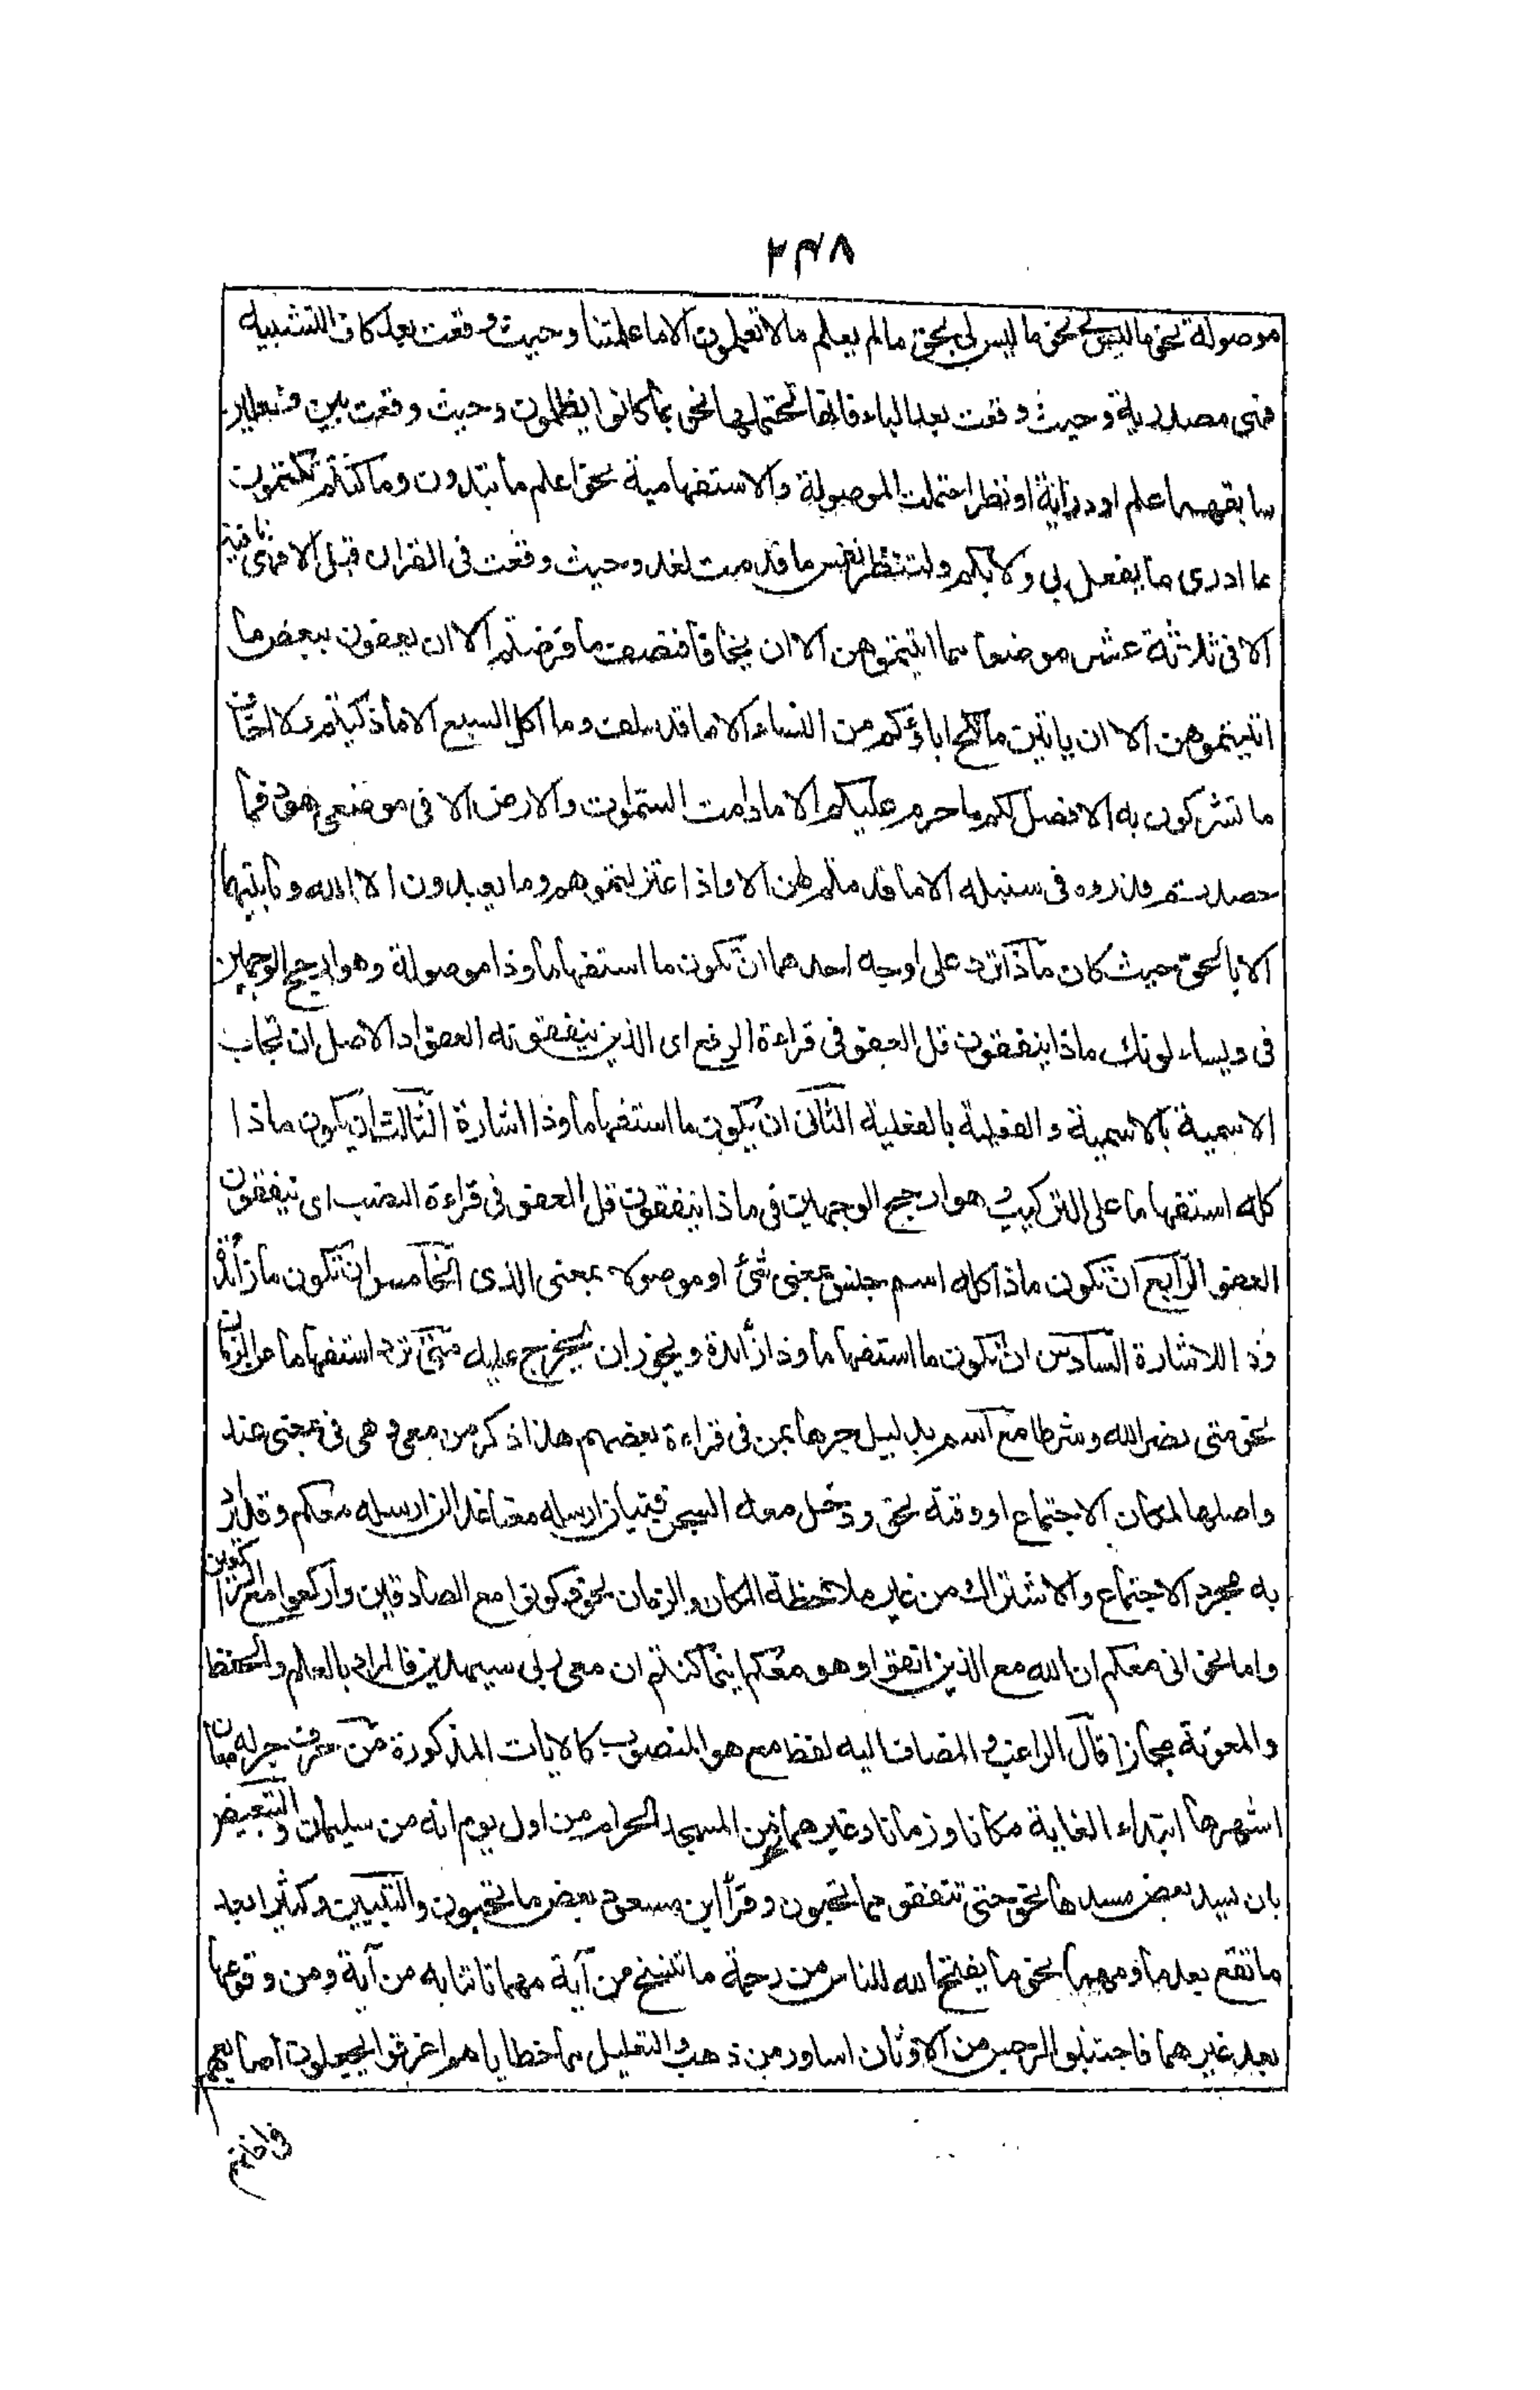 ٢٣٨
موصولة نحو ما ليس لي بحق ما لم يعلم ما لا تعلمون الا ما علمتنا وحيث وقعت بعد كاف التشبيه
فهي مصدرية وحيث وقعت بعد الباء فانها تحتملهما نحو بما كانوا يظلمون وحيث وقعت بين فعلين
سابقهما علم او دراية او نظر احتملت الموصولة والاستفهامية نحو اعلم ما تبدون وما كنتم تكتمون
ما ادرى ما يفعل بى ولا بكم ولتنظر نفس ما قدمت لغد وحيث وقعت فى القران قبل الا فهى نافية
الا فى ثلاثة عشر موضعا مما اتيتموهن الا ان يخافا فنصف ما فرضتم الا ان يعفون ببعض ما
اتيتموهن الا ان ياتين ما نكح اباؤكم من النساء الا ما قد سلف وما اكل السبع الا ما ذكيتم ولا اخاف
ما تشركون به الا فصل لكم ما حرم عليكم الا ما دامت السموات والارض الا فى موضعى هود فما
حصدتم فذروه فى سنبله الا ما قدمتم لهن الا واذ اعتزلتموهم وما يعبدون الا الله وما بينهما
الا بالحق حيث كان ماذا ترد على اوجه احدها ان تكون ما استفهاما وذا موصولة وهو ارجح الوجهين
فى ويساءلونك ماذا ينفقون قل العفو فى قراءة الرفع اى الذين ينفقونه العفو اد الاصل ان تجاب
الاسمية بالاسمية والفعلية بالفعلية الثانى ان يكون ما استفهاما وذا اشارة الثالث ان يكون ماذا
كله استفهاما على التركيب وهو ارجح الوجهين فى ماذا ينفقون قل العفو فى قراءة النصب اى ينفقون
العفو الرابع ان تكون ماذا كله اسم جنس بمعنى شئ او موصولا بمعنى الذى الخامس ان تكون ما زائدة
وذا للاشارة السادس ان تكون ما استفهاما وذا زائدة ويجوز ان يخرج عليه متى ترد استفهاما عن الزمان
نحو متى نصر الله وشرطا مع اسم بدليل جرها بمن فى قراءة بعضهم هذا ذكر من معى وهى فى بمعنى عند
واصلها لمكان الاجتماع او وقته نحو ودخل معه السجن فتيان ارسله معنا غدا لن ارسله معكم وقد يراد
به مجرد الاجتماع والاشتراك من غير ملاحظة المكان والزمان نحو وكونوا مع الصادقين واركعوا مع الراكعين
واما نحو انى معكم ان الله مع الذين اتقوا وهو معكم اينما كنتم ان معى ربى سيهدين فالمراد بالعلم والحفظ
والمعونة مجازا قال الراغب والمضاف اليه لفظ مع هو المنصوب كالايات المذكورة من حرف جر له معان
اشهرها ابتداء الغاية مكانا وزمانا وغيرهما نحو من المسجد الحرام من اول يوم انه من سليمان والتبعيض
بان يسد بعض مسدها نحو حتى تنفقو مما تحبون وقرأ ابن مسعود بعض ما تحبون والتبيين وكثيرا بعد
ما تقع بعد ما ومهما نحو ما يفتح الله للناس من رحمة ما ننسخ من آية مهما تاتنا به من آية ومن وقوعها
بعد غيرهما فاجتنبوا الرجس من الاوثان اساور من ذهب والتعليل مما خطاياهم اغرقوا يجعلون اصابعهم